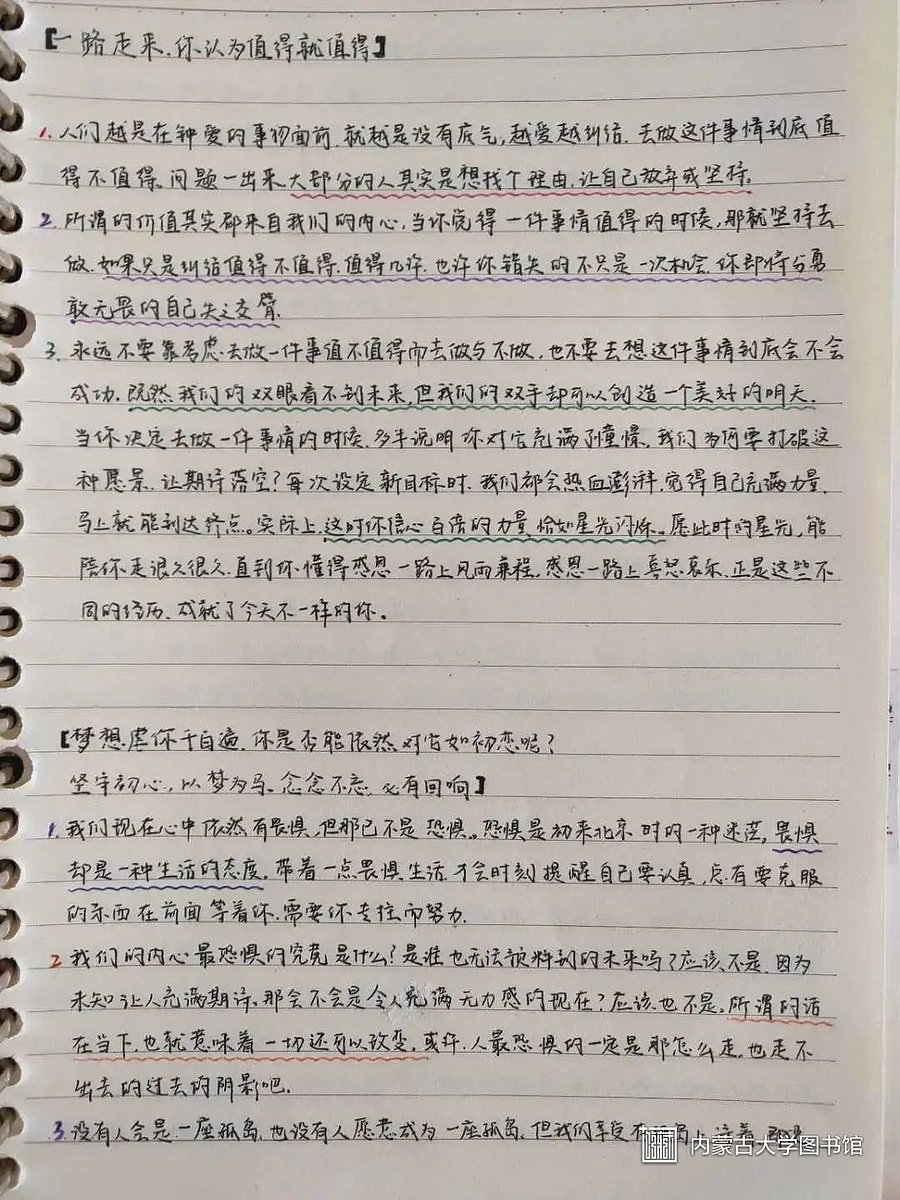 【一路走来，你认为值得就值得】
1. 人们越是在钟爱的事物面前，就越是没有底气，越爱越纠结。去做这件事情到底值
得不值得。问题一出来大部分的人其实是想找个理由，让自己放弃或坚持。
2. 所谓的价值其实都来自我们的内心，当你觉得一件事情值得的时候，那就坚持去
做。如果只是纠结值得不值得，值得几许，也许你错失的不只是一次机会，你即将与勇
敢无畏的自己失之交臂。
3. 永远不要靠考虑去做一件事值不值得而去做与不做，也不要去想这件事情到底会不会
成功。既然我们的双眼看不到未来，但我们的双手却可以创造一个美好的明天。
当你决定去做一件事情的时候，多半说明你对它充满了憧憬。我们为何要打破这
种愿景，让期待落空？每次设定新目标时，我们都会热血澎湃，觉得自己充满力量，
马上就能到达终点。实际上，这时你信心百倍的力量，恰如星光闪烁。愿此时的星光，能
陪你走很久很久，直到你懂得感恩一路上风雨兼程，感恩一路上喜怒哀乐，正是这些不
同的经历，成就了今天不一样的你。
【梦想虐你千百遍，你是否能依然对它如初恋呢？
坚守初心，以梦为马，念念不忘，必有回响】
1. 我们现在心中依然有畏惧，但那已不是恐惧。恐惧是初来北京时的一种迷茫，畏惧
却是一种生活的态度。带着一点畏惧生活，才会时刻提醒自己要认真，总有要克服
的东西在前面等着你，需要你专注而努力。
2 我们的内心最恐惧的究竟是什么？是谁也无法预料到的未来吗？应该不是，因为
未知让人充满期待。那会不会是令人充满无力感的现在？应该也不是。所谓的活
在当下，也就意味着一切还可以改变。或许，人最恐惧的一定是那怎么走，也走不
出去的过去的阴影吧。
3. 没有人会是一座孤岛，也没有人愿意成为一座孤岛。但我们享受
内蒙古大学图书馆